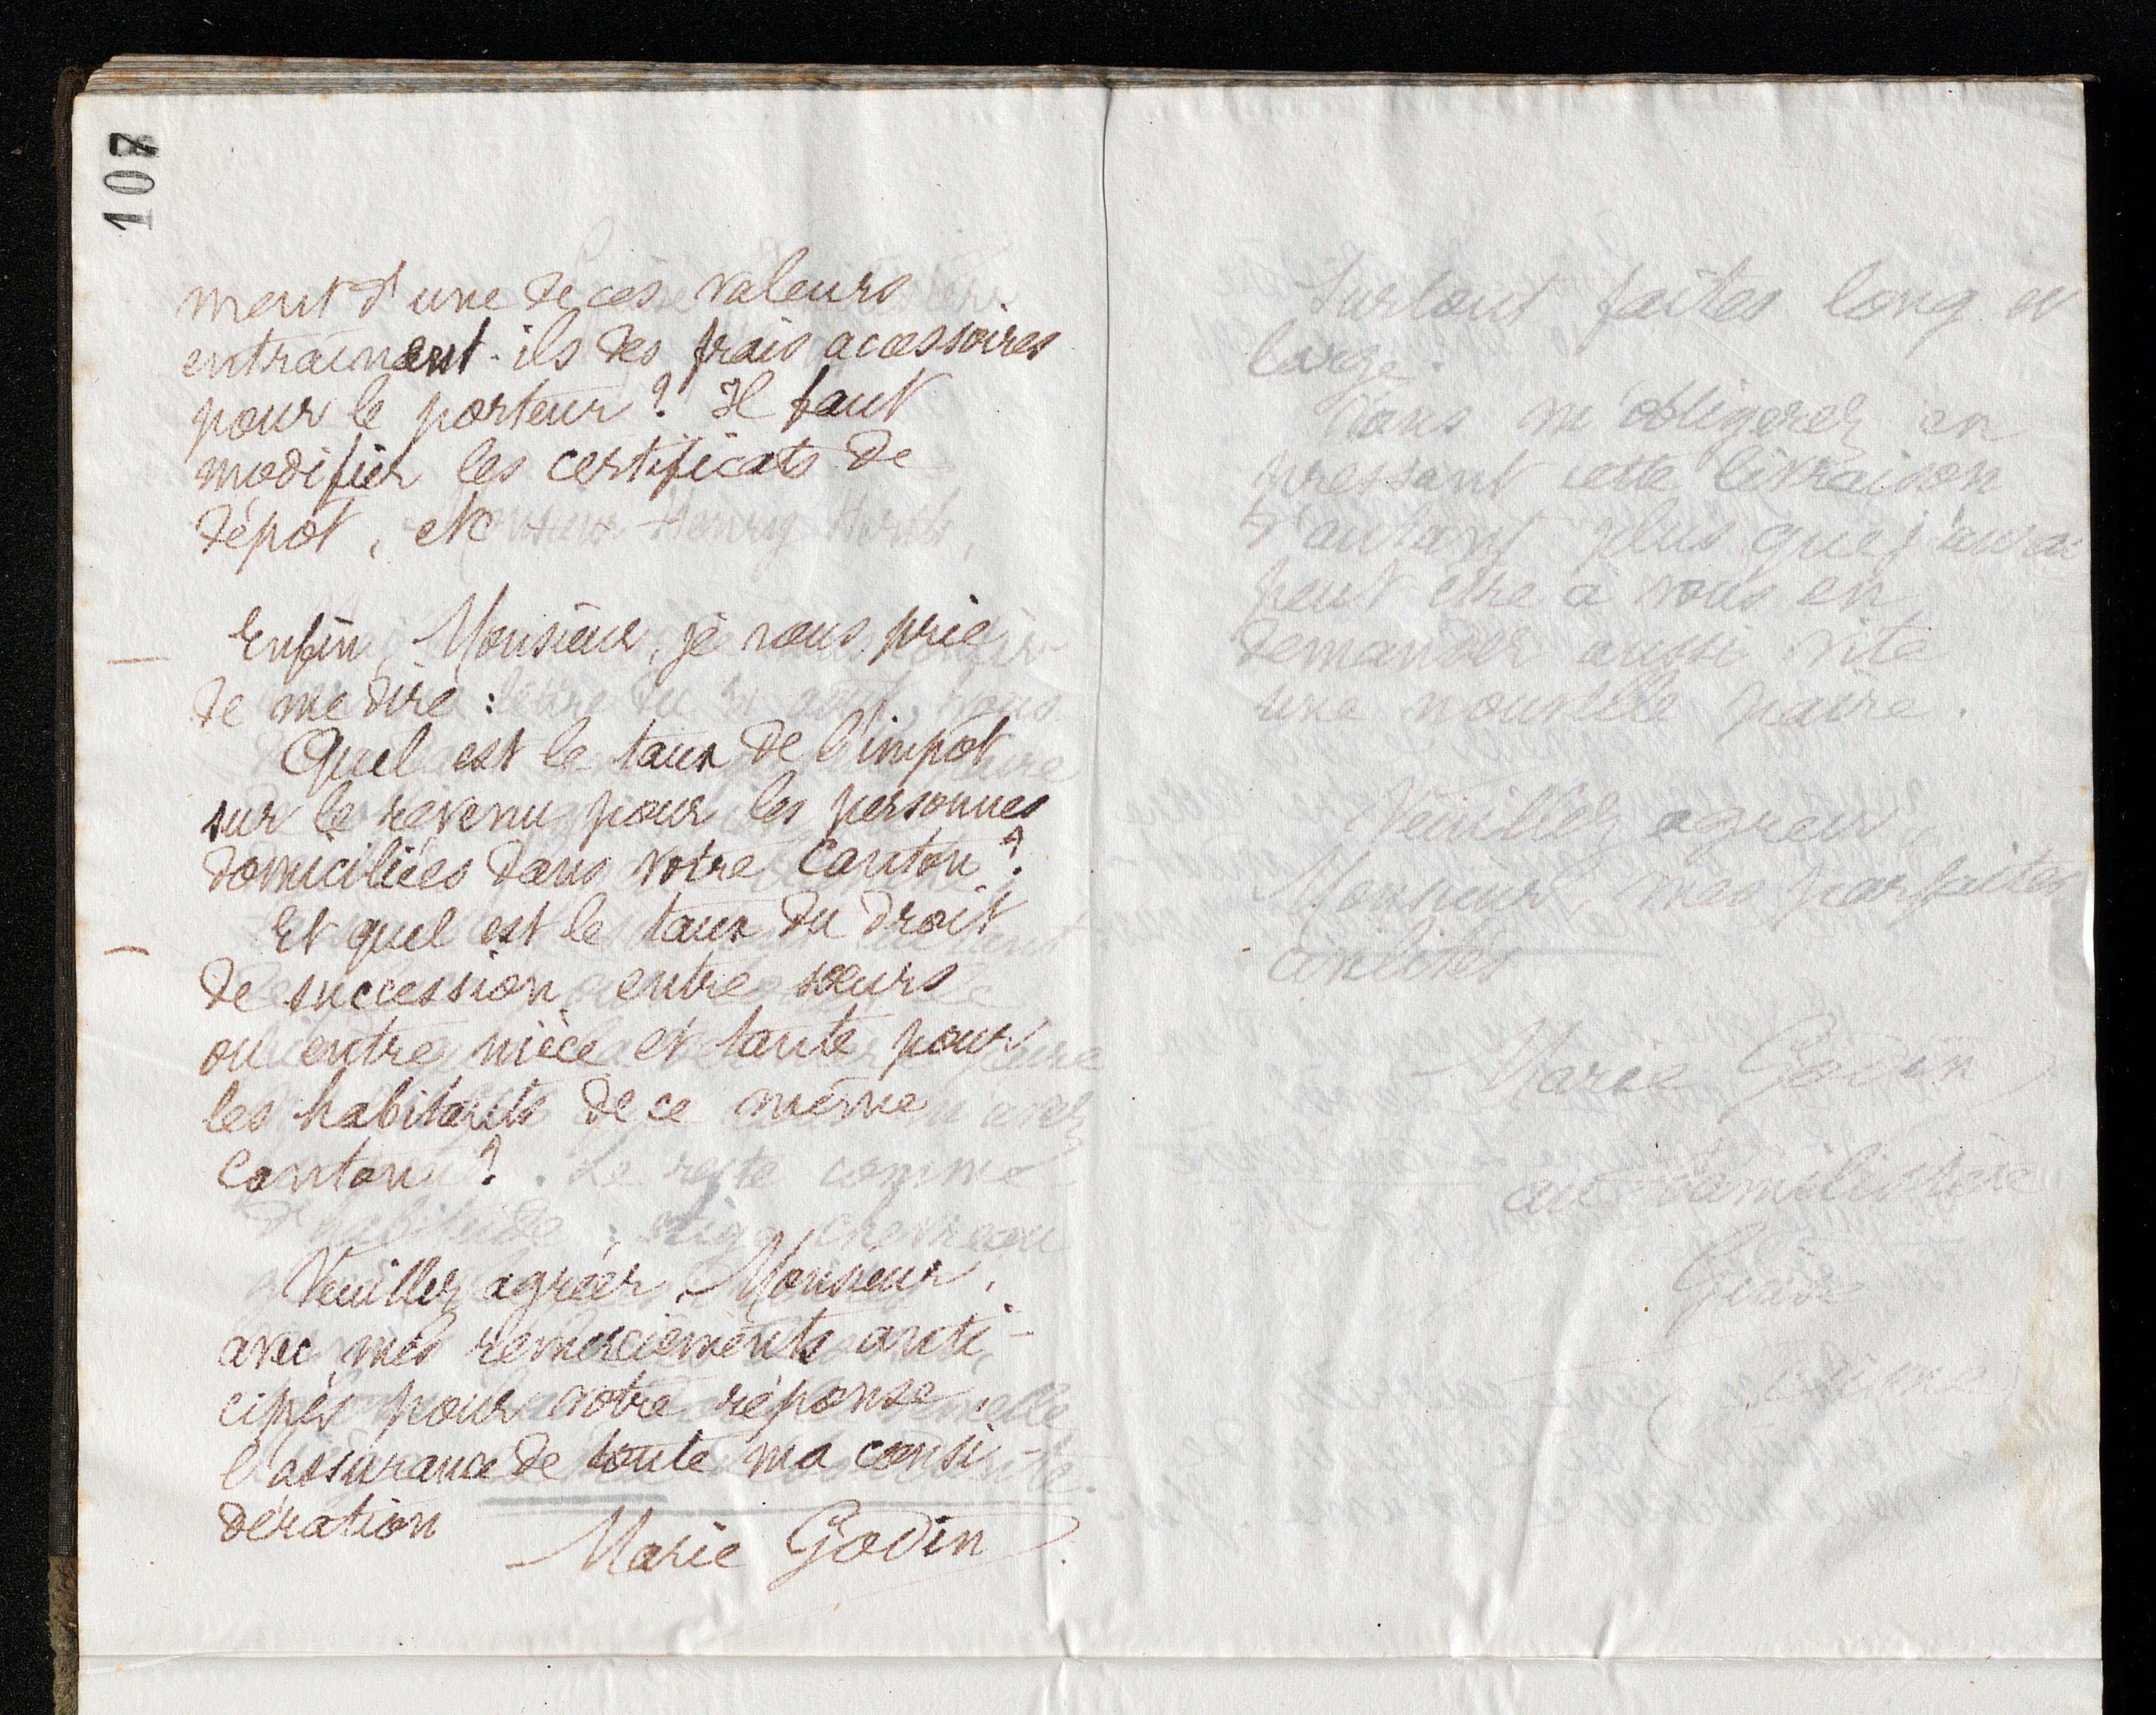 107
ment d'une de ces valeurs
entrainent-ils des frais accessoires
pour le porteur ? Il faut
modifier les certificats de
dépôt, etc
Enfin, Monsieur, je vous prie
de me dire :
Quel est le taux de l'impôt
sur le revenu pour les personnes
domiciliées dans votre Canton ?
Et quel est le taux du droit
de succession entre sœurs
ou entre nièce et tante pour
les habitants de ce même
Canton ?
Veuillez agréer, Monsieur,
avec mes remerciements anti-
cipés pour votre réponse,
l'assurance de toute ma consi-
dération
Marie Godin
Surtout faites long et
large.
Vous m'obligerez en
pressant cette livraison
d'autant plus que j'aurai
peut être à vous en
demander aussi vite
une nouvelle paire.
Veuillez agréer,
Monsieur, mes parfaites
civilités
Marie Godin
au Familistère
Guise